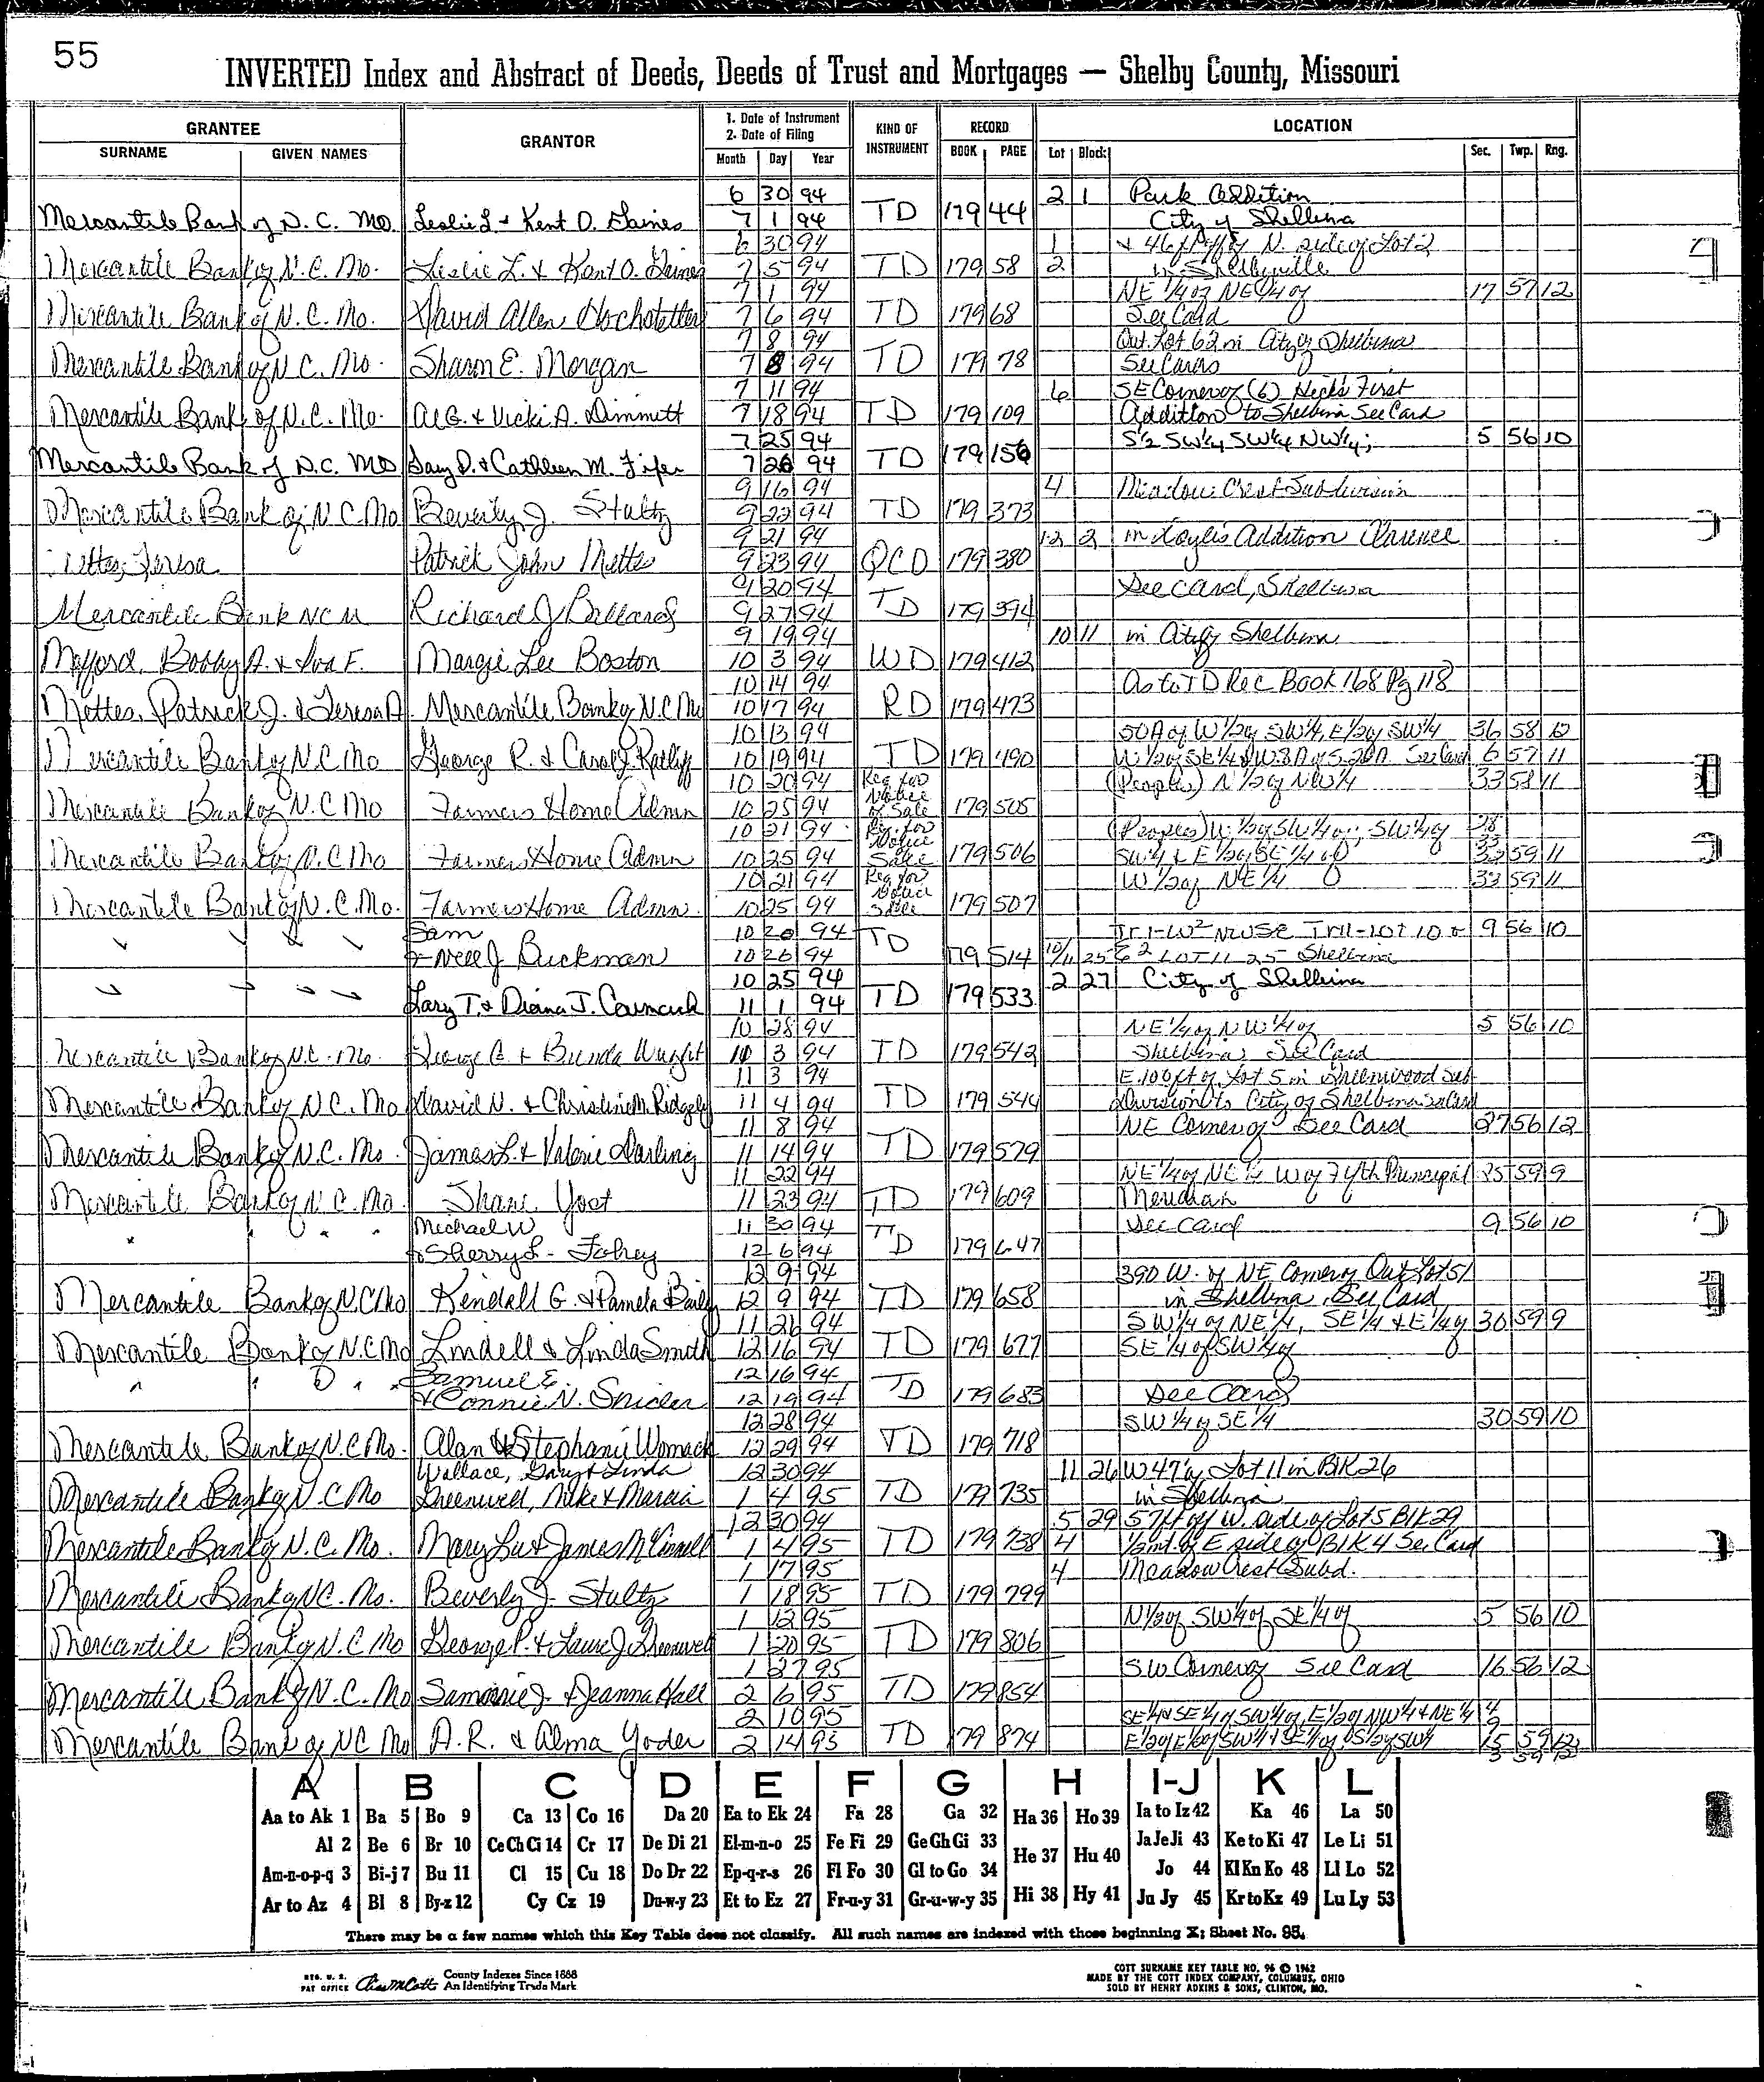 55
INVERTED Index and Abstract of Deeds, Deeds of Trust and Mortgages — Shelby County, Missouri
GRANTEE GRANTOR 1. Date of Instrument 2. Date of Filing KIND OF INSTRUMENT RECORD LOCATION
SURNAME GIVEN NAMES Month Day Year BOOK PAGE Lot Block Sec. Twp. Rng.
6 30 94 2 1 Park Addition
Mercantile Bank of N.C. MO. Leslie L. & Kent O. Gaines 7 1 94 TD 179 44 City of Shelbina
6 30 94 1 & 46 ft off of N. side of Lot 2
Mercantile Bank of N.C. Mo. Leslie L. & Kent O. Gaines 7 5 94 TD 179 58 2 in Shelbyville
7 1 94 NE 1/4 of NE 1/4 of 17 57 12
Mercantile Bank of N.C. Mo. David Allen Hochstetler 7 6 94 TD 179 68 See Card
7 8 94 Out Lot 62 in City of Shelbina
Mercantile Bank of N C. Mo. Sharon E. Morgan 7 8 94 TD 179 78 See Cards
7 11 94 6 SE Corner of (6) Heck's First
Mercantile Bank of N.C. Mo. Al G. & Vicki A. Dimmett 7 18 94 TD 179 109 Addition to Shelbina See Card
7 25 94 S 1/2 SW 1/4 SW 1/4 NW 1/4; 5 56 10
Mercantile Bank of N.C. MO Gary D. & Cathleen M. Fifer 7 26 94 TD 179 156
9 16 94 4 Meadow Crest Subdivision
Mercantile Bank of N C. Mo Beverly J. Stultz 9 22 94 TD 179 373
9 21 94 12 2 in Addition Clarence
Teresa Patrick John Mettes 9 23 94 QCD 179 380
9 20 94 See Card, Shelbina
Mercantile Bank NC M Richard J Ballard 9 27 94 TD 179 394
9 19 94 10 11 in City of Shelbina
Mofford, Bobby A. & Iva F. Margie Lee Boston 10 3 94 WD 179 412
10 14 94 As to TD Rec Book 168 Pg 118
Mettes, Patrick J. & Teresa A. Mercantile Bank of N.C. Mo 10 17 94 RD 179 473
10 13 94 50A of W 1/2 of SW 1/4, E 1/2 of SW 1/4 36 58 12
Mercantile Bank of N.C. Mo George R. & Carol J. Ratliff 10 19 94 TD 179 490 W 1/2 of SE 1/4 See Card 6 57 11
10 20 94 Req for (Peoples) N 1/2 of NW 1/4 33 58 11
Mercantile Bank of N.C Mo Farmers Home Admn 10 25 94 Notice of Sale 179 505
10 21 94 Req. for (Peoples) W 1/2 of SW 1/4 of; SW 1/4 of 28
Mercantile Bank of N.C Mo Farmers Home Admn 10 25 94 Notice Sale 179 506 SW 1/4 & E 1/2 of SE 1/4 of 33 59 11
10 21 94 Req for W 1/2 of NE 1/4 33 59 11
Mercantile Bank of N.C. Mo. Farmers Home Admn. 10 25 94 Notice Sale 179 507
Sam 10 20 94 Tr I-W 2 NWSE Tr II-LOT 10 & 9 56 10
& Nell J Buckman 10 26 94 TD 179 514 10/11 25 E 2 LOT 11 25 - Shelbina
10 25 94 2 27 City of Shelbina
Gary T. & Diana J. 11 1 94 TD 179 533
10 28 94 NE 1/4 of NW 1/4 of 5 56 10
Mercantile Bank of N.C. Mo. George C. & Brenda Wright 11 3 94 TD 179 542 Shelbina See Card
11 3 94 E. 100 ft of Lot 5 in Shelmwood Sub
Mercantile Bank of N.C. Mo David N. & Christine M. Ridgely 11 4 94 TD 179 544 division to City of Shelbina See Card
11 8 94 NE Corner of See Card 27 56 12
Mercantile Bank of N.C. Mo. James L. & Valerie Darling 11 14 94 TD 179 579
11 22 94 NE 1/4 of NE 1/4 W of 5th Principal 25 59 9
Mercantile Bank of N.C. Mo. Shane Yoct 11 23 94 TD 179 609 Meridian
Michael W 11 30 94 See Card 9 56 10
" " " " & Sherry L - Fohey 12 6 94 TD 179 647
12 9 94 390 W. of NE Corner of Out Lot 51
Mercantile Bank of N.C Mo Kendall G. & Pamela Baily 12 9 94 TD 179 658 in Shelbina, See Card
11 26 94 SW 1/4 of NE 1/4, SE 1/4 & E 1/4 of 30 59 9
Mercantile Bank of N.C. Mo Lindell & Linda Smith 12 16 94 TD 179 677 SE 1/4 of SW 1/4 of
Samuel E. 12 16 94
" " " " & Connie N. Snider 12 19 94 TD 179 683 See Card
12 28 94 SW 1/4 of SE 1/4 30 59 10
Mercantile Bank of N.C Mo. Alan & Stephanie Womack 12 29 94 TD 179 718
Wallace, Gary & Linda 12 30 94 11 26 W 47' of Lot 11 in Blk 26
Mercantile Bank of N.C Mo Greenwell, Mike & Marcia 1 4 95 TD 179 735 in Shelbina
12 30 94 5 29 57 ft off W. side of Lot 5 Blk 29
Mercantile Bank of N.C. Mo. Mary Lu & James McConnell 1 4 95 TD 179 738 4 E side of Blk 4 See Card
1 17 95 4 Meadow Crest Subd.
Mercantile Bank of N.C. Mo. Beverly J. Stultz 1 18 95 TD 179 799
1 12 95 N 1/2 of SW 1/4 of SE 1/4 of 5 56 10
Mercantile Bank of N.C Mo George P. & Laura J Greenwell 1 20 95 TD 179 806
1 27 95 SW Corner of See Card 16 56 12
Mercantile Bank of N.C. Mo Sammie J. & Deanna Hall 2 6 95 TD 179 854
2 10 95 SE 1/4 SE 1/4 of SW 1/4 of, E 1/2 of NW 1/4 & NE 1/4 4
Mercantile Bank of NC Mo A.R. & Alma Yoder 2 14 95 TD 179 874 15 59 12
A B C D E F G H I-J K L
Aa to Ak 1 Ba 5 Bo 9 Ca 13 Co 16 Da 20 Ea to Ek 24 Fa 28 Ga 32 Ha 36 Ho 39 Ia to Iz 42 Ka 46 La 50
Al 2 Be 6 Br 10 Ce Ch Ci 14 Cr 17 De Di 21 El-m-n-o 25 Fe Fi 29 Ge Gh Gi 33 He 37 Hu 40 Ja Je Ji 43 Ke to Ki 47 Le Li 51
Am-n-o-p-q 3 Bi-j 7 Bu 11 Cl 15 Cu 18 Do Dr 22 Ep-q-r-s 26 Fl Fo 30 Gl to Go 34 Jo 44 Kl Kn Ko 48 Ll Lo 52
Ar to Az 4 Bl 8 By-z 12 Cy Cz 19 Du-w-y 23 Et to Ez 27 Fr-u-y 31 Gr-u-w-y 35 Hi 38 Hy 41 Ju Jy 45 Kr to Kz 49 Lu Ly 53
There may be a few names which this Key Table does not classify. All such names are indexed with those beginning X; Sheet No. 95.
REG. U. S. PAT OFFICE County Indexes Since 1888 An Identifying Trade Mark
COTT SURNAME KEY TABLE NO. 96 © 1962
MADE BY THE COTT INDEX COMPANY, COLUMBUS, OHIO
SOLD BY HENRY ADKINS & SONS, CLINTON, MO.